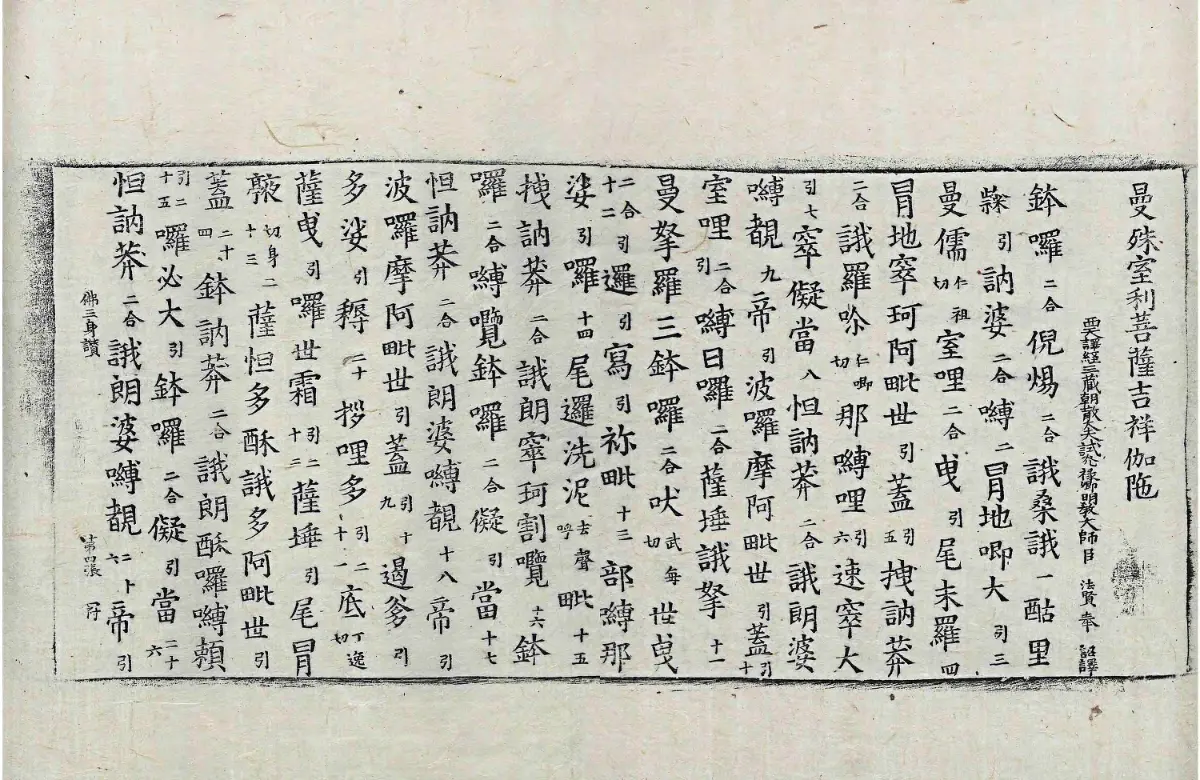 曼殊室利菩薩吉祥伽陁
西天譯經三藏朝散大夫試光祿卿明教大師臣 法賢奉 詔譯
鉢囉二合倪惕二合誐桑誐一酤里
引訥婆二合嚩二冐地唧大引三
曼儒仁祖切室哩二合曵引尾未羅四
冐地窣珂阿毗世引蓋引五拽訥莾
二合誐羅唅仁唧切那嚩哩引六速窣大
引七窣儗當八怛訥莾二合誐朗婆
嚩覩九帝引波囉摩阿毗世引蓋引十
室哩二合引嚩日囉二合薩埵誐拏十一
曼拏羅三鉢囉二合吠武每切世曵
二合引十二邏引寫引祢毗十三部嚩那
娑引囉十四尾邏洗泥去聲呼毗十五
拽訥莾二合誐朗窣珂割囕十六鉢
囉二合嚩囕鉢囉二合儗引當十七
怛訥莾二合誐朗婆嚩覩十八帝引
波囉摩阿毗世引蓋引十九遏爹引
多娑引耨二十拶哩多引二十一底丁逸切
薩曵引囉世霜引二十二薩埵引尾冐
切身二十三薩怛多酥誐多阿毗世引
蓋二十四鉢訥莾二合誐朗酥囉嚩頼
引二十五囉必大引鉢囉二合儗引當二十六
怛訥莾二合誐朗婆嚩覩二十帝引
佛三身讃 第四張